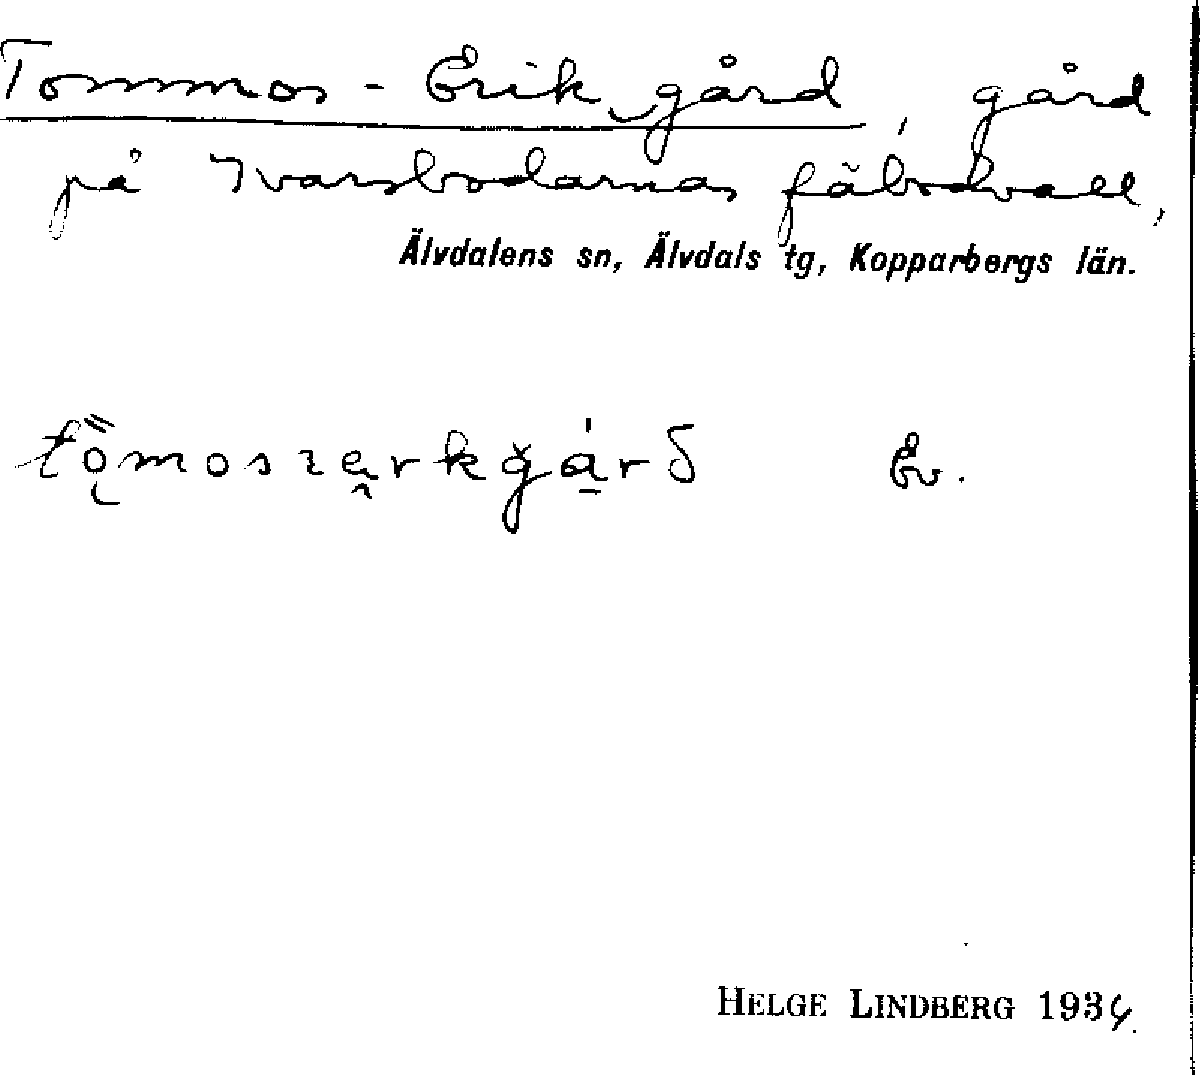 Tommos-Erik gård, gård
på Ivarsbodarnas fäbodvall,
Älvdalens sn, Älvdals tg, Kopparbergs län.
Ev.
HELGE LINDBERG 1934